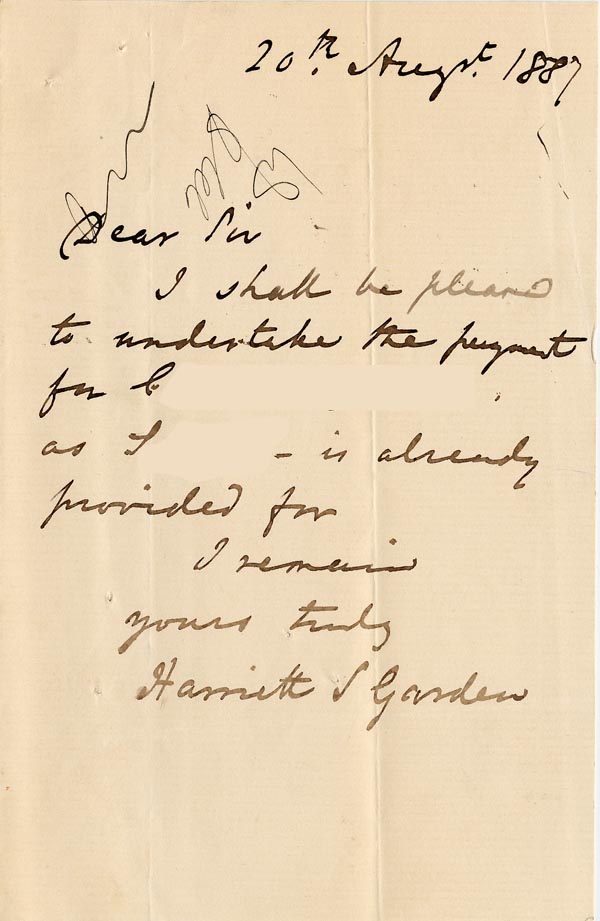 20th. Augst. 1887
Dear Sir
I shall be pleased
to undertake the payment
for C
as T
- is already
provided for
I remain
yours truly
Harriett S Garden